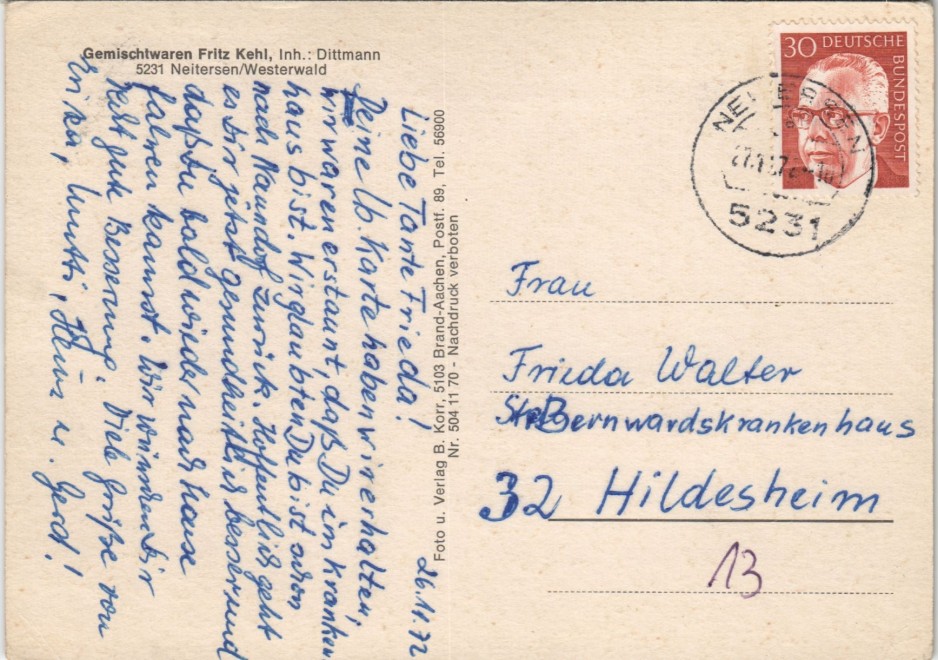 Gemischtwaren Fritz Kehl, Inh.: Dittmann
5231 Neitersen/Westerwald
26.11.72
Liebe Tante Frieda!
Deine lb. Karte haben wir erhalten,
wir waren erstaunt, daß Du im Kranken
haus bist. Wir glaubten Du bist schon
nach Naundorf zurück. Hoffentlich geht
es Dir jetzt gesundheitlich besser und
daß Du bald wieder nach Hause
fahren kannst. Wir wünschen Dir
recht gute Besserung. Viele Grüße von
Erika, Mutti, Heinz u. Gerd!
Foto u. Verlag B. Korr, 5103 Brand-Aachen, Postf. 89, Tel. 56900
Nr. 504 11 70 - Nachdruck verboten
30 DEUTSCHE
BUNDESPOST
NEITERSEN
5231
Frau
Frieda Walter
St. Bernwardskrankenhaus
32 Hildesheim
13